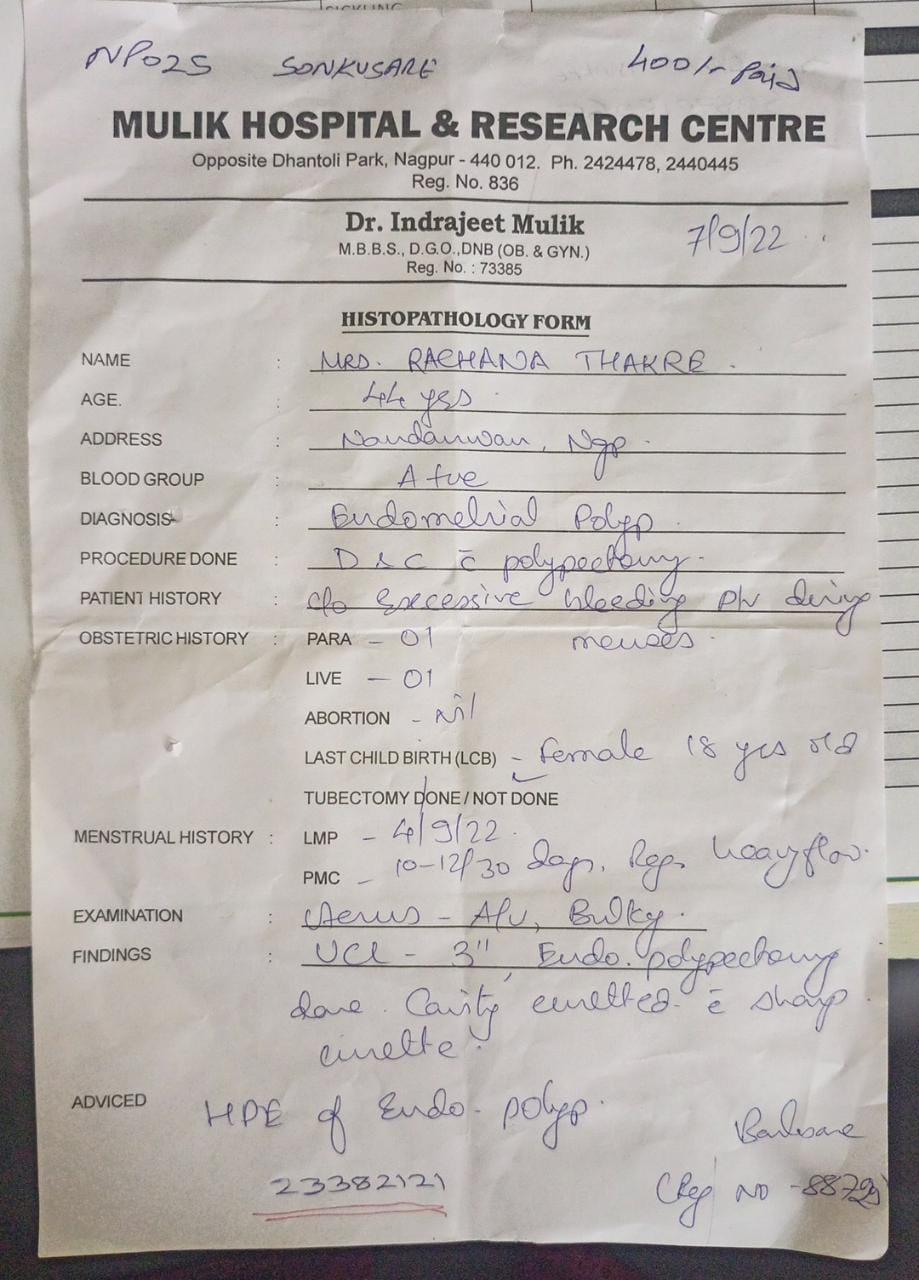 SICKLING
NP025 SONKUSARE 400/- Paid
MULIK HOSPITAL & RESEARCH CENTRE
Opposite Dhantoli Park, Nagpur - 440 012. Ph. 2424478, 2440445
Reg. No. 836
Dr. Indrajeet Mulik
M.B.B.S., D.G.O.,DNB (OB. & GYN.)
Reg. No. : 73385
7/9/22
HISTOPATHOLOGY FORM
NAME : MRS. RACHANA THAKRE.
AGE. : 44 yrs.
ADDRESS : Nandanwan, Ngp.
BLOOD GROUP : A +ve
DIAGNOSIS : Endometrial Polyp.
PROCEDURE DONE : D & C c̄ polypectomy.
PATIENT HISTORY : c/o Excessive bleeding P/V during
menses.
OBSTETRIC HISTORY : PARA - 01
LIVE - 01
ABORTION - Nil
LAST CHILD BIRTH (LCB) - Female 18 yrs old
TUBECTOMY DONE / NOT DONE
MENSTRUAL HISTORY : LMP - 4/9/22.
PMC - 10-12/30 days, Reg, heavy flow.
EXAMINATION : Uterus - A/V, Bulky.
FINDINGS : UCL - 3", Endo. polypectomy
done. Cavity curetted c̄ sharp
curette.
ADVICED HPE of Endo. polyp.
23382121
(Reg NO -